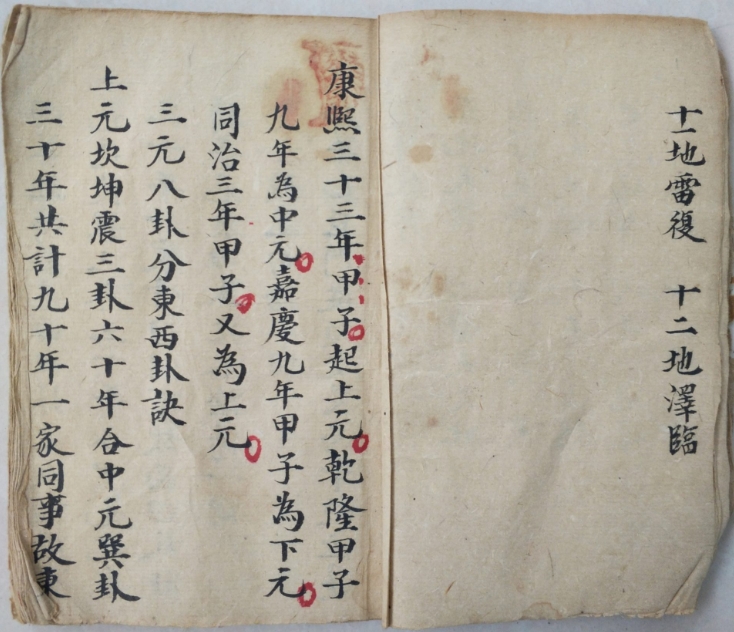 十一地雷復　十二地澤臨
康熙三十三年甲子起上元乾隆甲子
九年為中元嘉慶九年甲子為下元
同治三年甲子又為上元
三元八卦分東西卦訣
上元坎坤震三卦六十年合中元巽卦
三十年共計九十年一家同事故東